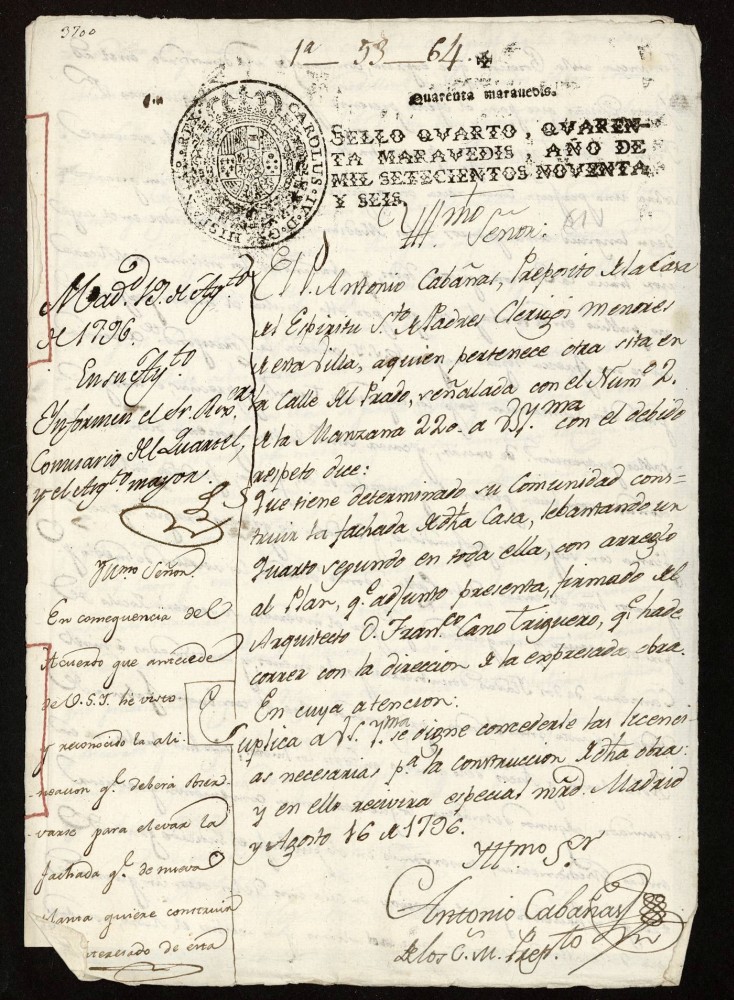 3700
1ª — 53 — 64.
Quarenta maravedis.
CAROLUS IV D G HISPANIAR REX
SELLO QVARTO, QVAREN-
TA MARAVEDIS, AÑO DE
MIL SETECIENTOS NOVENTA
Y SEIS.
Yllmo
Señor:
El P. Antonio Cabañas, Preposito de la Casa
del Espiritu Sto. de Padres Clerigos menores
de esta Villa, a quien pertenece otra sita en
la Calle del Prado, señalada con el Numº 2.
de la Manzana 220. a V.S. Yma con el debido
respeto dice:
Que tiene determinado su Comunidad cons-
truir la fachada de dha Casa, lebantando un
quarto segundo en toda ella, con arreglo
al Plan, qe. adjunto presenta, firmado del
Arquitecto D. Franco. Cano Triguero, qe. ha de
correr con la direccion de la expresada obra.
En cuya atencion:
Suplica a V.S. Yma se digne concederle las licenci-
as necesarias pa. la construccion de dha obra:
y en ello recivira especial mrd. Madrid
y Agosto 16 de 1796.
Yllmo Sor
Antonio Cabañas
de los C. M. Prepto.
Madd. 19 de Agto
de 1796.
En su Aytto
Informen el Sr. Rexor
Comisario del Quartel,
y el Arqto. mayor.
Yllmo Señor
En consequencia del
Acuerdo que antecede
de V.S.I. he visto
y reconocido la ali-
neacion qe. deberá obser-
varse para elevar la
fachada qe. de nueva
planta quiere construir
interesado de esta